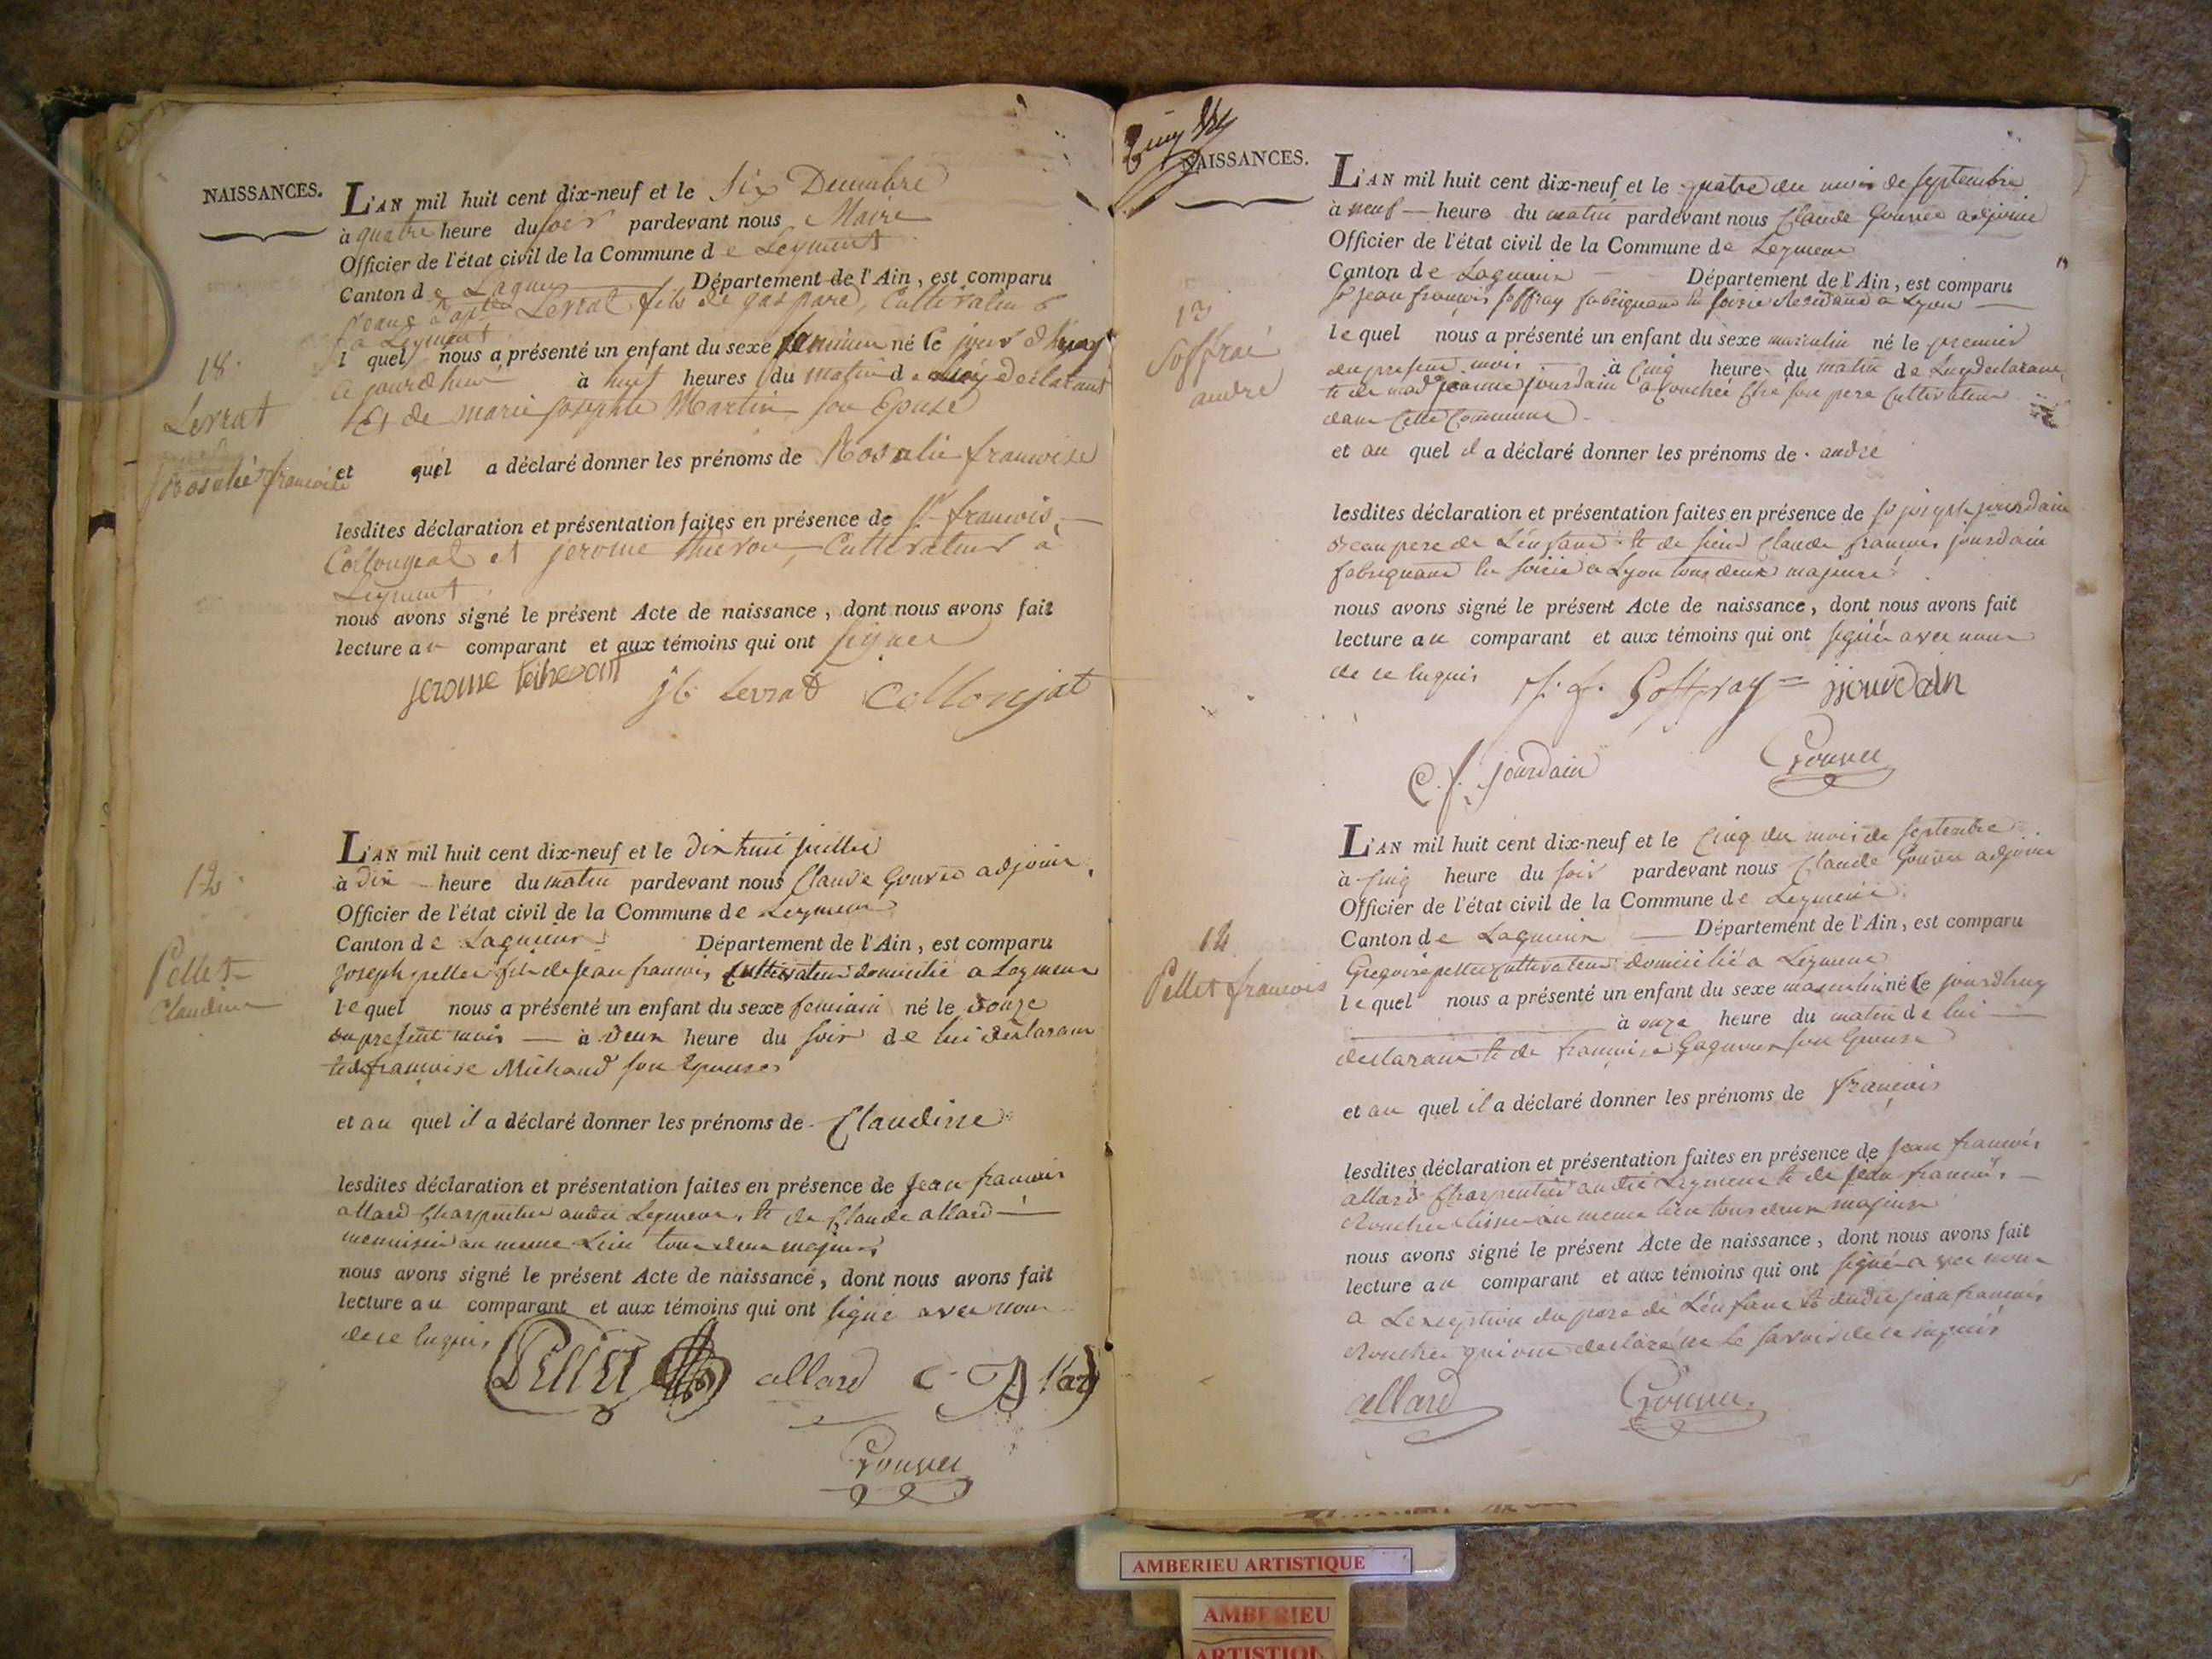 NAISSANCES.
L'AN mil huit cent dix-neuf et le Six Decembre
à quatre heure du soir pardevant nous Maire
Officier de l'état civil de la Commune de Leyment
Canton de Lagnieu Département de l'Ain, est comparu
Levrat fils de gaspard, Cultivateur
a Leyment
18.
l quel nous a présenté un enfant du sexe feminin né le jour d'huy
à huit heures du matin de declarant
Et de marie josephte Martin son Epouse
Levrat
Rosalie francoise
et quel a déclaré donner les prénoms de Rosalie francoise
lesdites déclaration et présentation faites en présence de Sr francois
Collonjeat et jerome thievon, Cultivateur à
Leyment
nous avons signé le présent Acte de naissance, dont nous avons fait
lecture au comparant et aux témoins qui ont signer
jerome jb Levrat Collonjat
L'AN mil huit cent dix-neuf et le dix huit juillet
12.
à dix heure du matin pardevant nous Claude Gouvee adjoint
Officier de l'état civil de la Commune de Leyment
Canton de Lagnieux Département de l'Ain, est comparu
Pellet
Claudine
joseph pellet fils de jean francois Cultivateur domicilié a Leyment
le quel nous a présenté un enfant du sexe feminin né le douze
du present mois à deux heure du soir de lui declarant
et de françoise Michaud son epouse
et au quel il a déclaré donner les prénoms de Claudine
lesdites déclaration et présentation faites en présence de jean francois
allard Charpentier audit Leyment, et de Claude allard
menuisier au meme Lieu tous deux majeurs
nous avons signé le présent Acte de naissance, dont nous avons fait
lecture au comparant et aux témoins qui ont signé avec nous
de ce requis
Pellet allard
Gouvee
NAISSANCES.
L'AN mil huit cent dix-neuf et le quatre du mois de septembre
à neuf heure du matin pardevant nous Claude Gouvee adjoint
Officier de l'état civil de la Commune de Leyment
Canton de Lagnieux Département de l'Ain, est comparu
sr jean françois soffray fabriquant en soirie Residant a Lyon
13
Soffrai
andré
le quel nous a présenté un enfant du sexe masculin né le premier
du present mois à Cinq heure du matin de Luy declarant
et de mad jeanne jourdain acouchée Ché son pere Cultivateur
dans Cette Commune
et au quel il a déclaré donner les prénoms de andré
lesdites déclaration et présentation faites en présence de sr joseph jourdain
beau pere de L'enfant et de sieur Claude françois jourdain
fabriquant en soirie a Lyon tous deux majeurs
nous avons signé le présent Acte de naissance, dont nous avons fait
lecture au comparant et aux témoins qui ont signé avec nous
de ce requis j. f. Soffray jjourdain
C. f. jourdain Gouvee
L'AN mil huit cent dix-neuf et le Cinq du mois de septembre
à Cinq heure du soir pardevant nous Claude Gouvee adjoint
Officier de l'état civil de la Commune de Leyment
14
Canton de Lagnieux Département de l'Ain, est comparu
Gregoire pellet Cultivateur domicilié a Leyment
Pellet francois
le quel nous a présenté un enfant du sexe masculin né le jourdhuy
à onze heure du matin de lui
declarant et de françoise Gagneux son Epouse
et au quel il a déclaré donner les prénoms de françois
lesdites déclaration et présentation faites en présence de jean francois
allard Charpentier audit Leyment et de jean francois
au meme lieu tous deux majeurs
nous avons signé le présent Acte de naissance, dont nous avons fait
lecture au comparant et aux témoins qui ont signé avec nous
a L'exception du pere de L'enfant et dudit jean francois
qui ont declaré ne le savoir de ce requis
allard Gouvee
AMBERIEU ARTISTIQUE
AMBERIEU